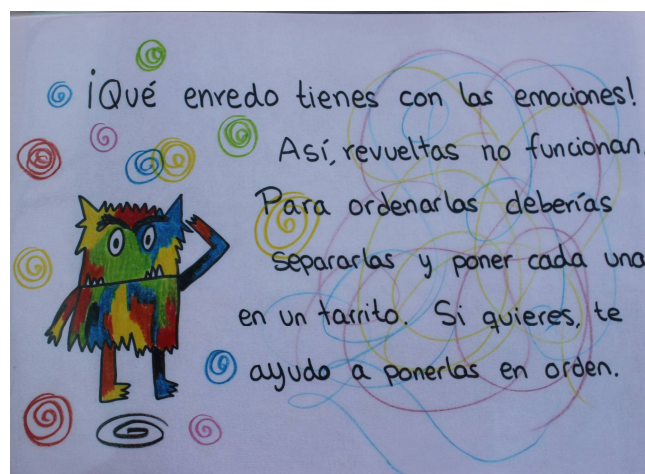 ¡Qué enredo tienes con las emociones!
Así, revueltas no funcionan.
Para ordenarlas deberías
separarlas y poner cada una
en un tarrito. Si quieres, te
ayudo a ponerlas en orden.